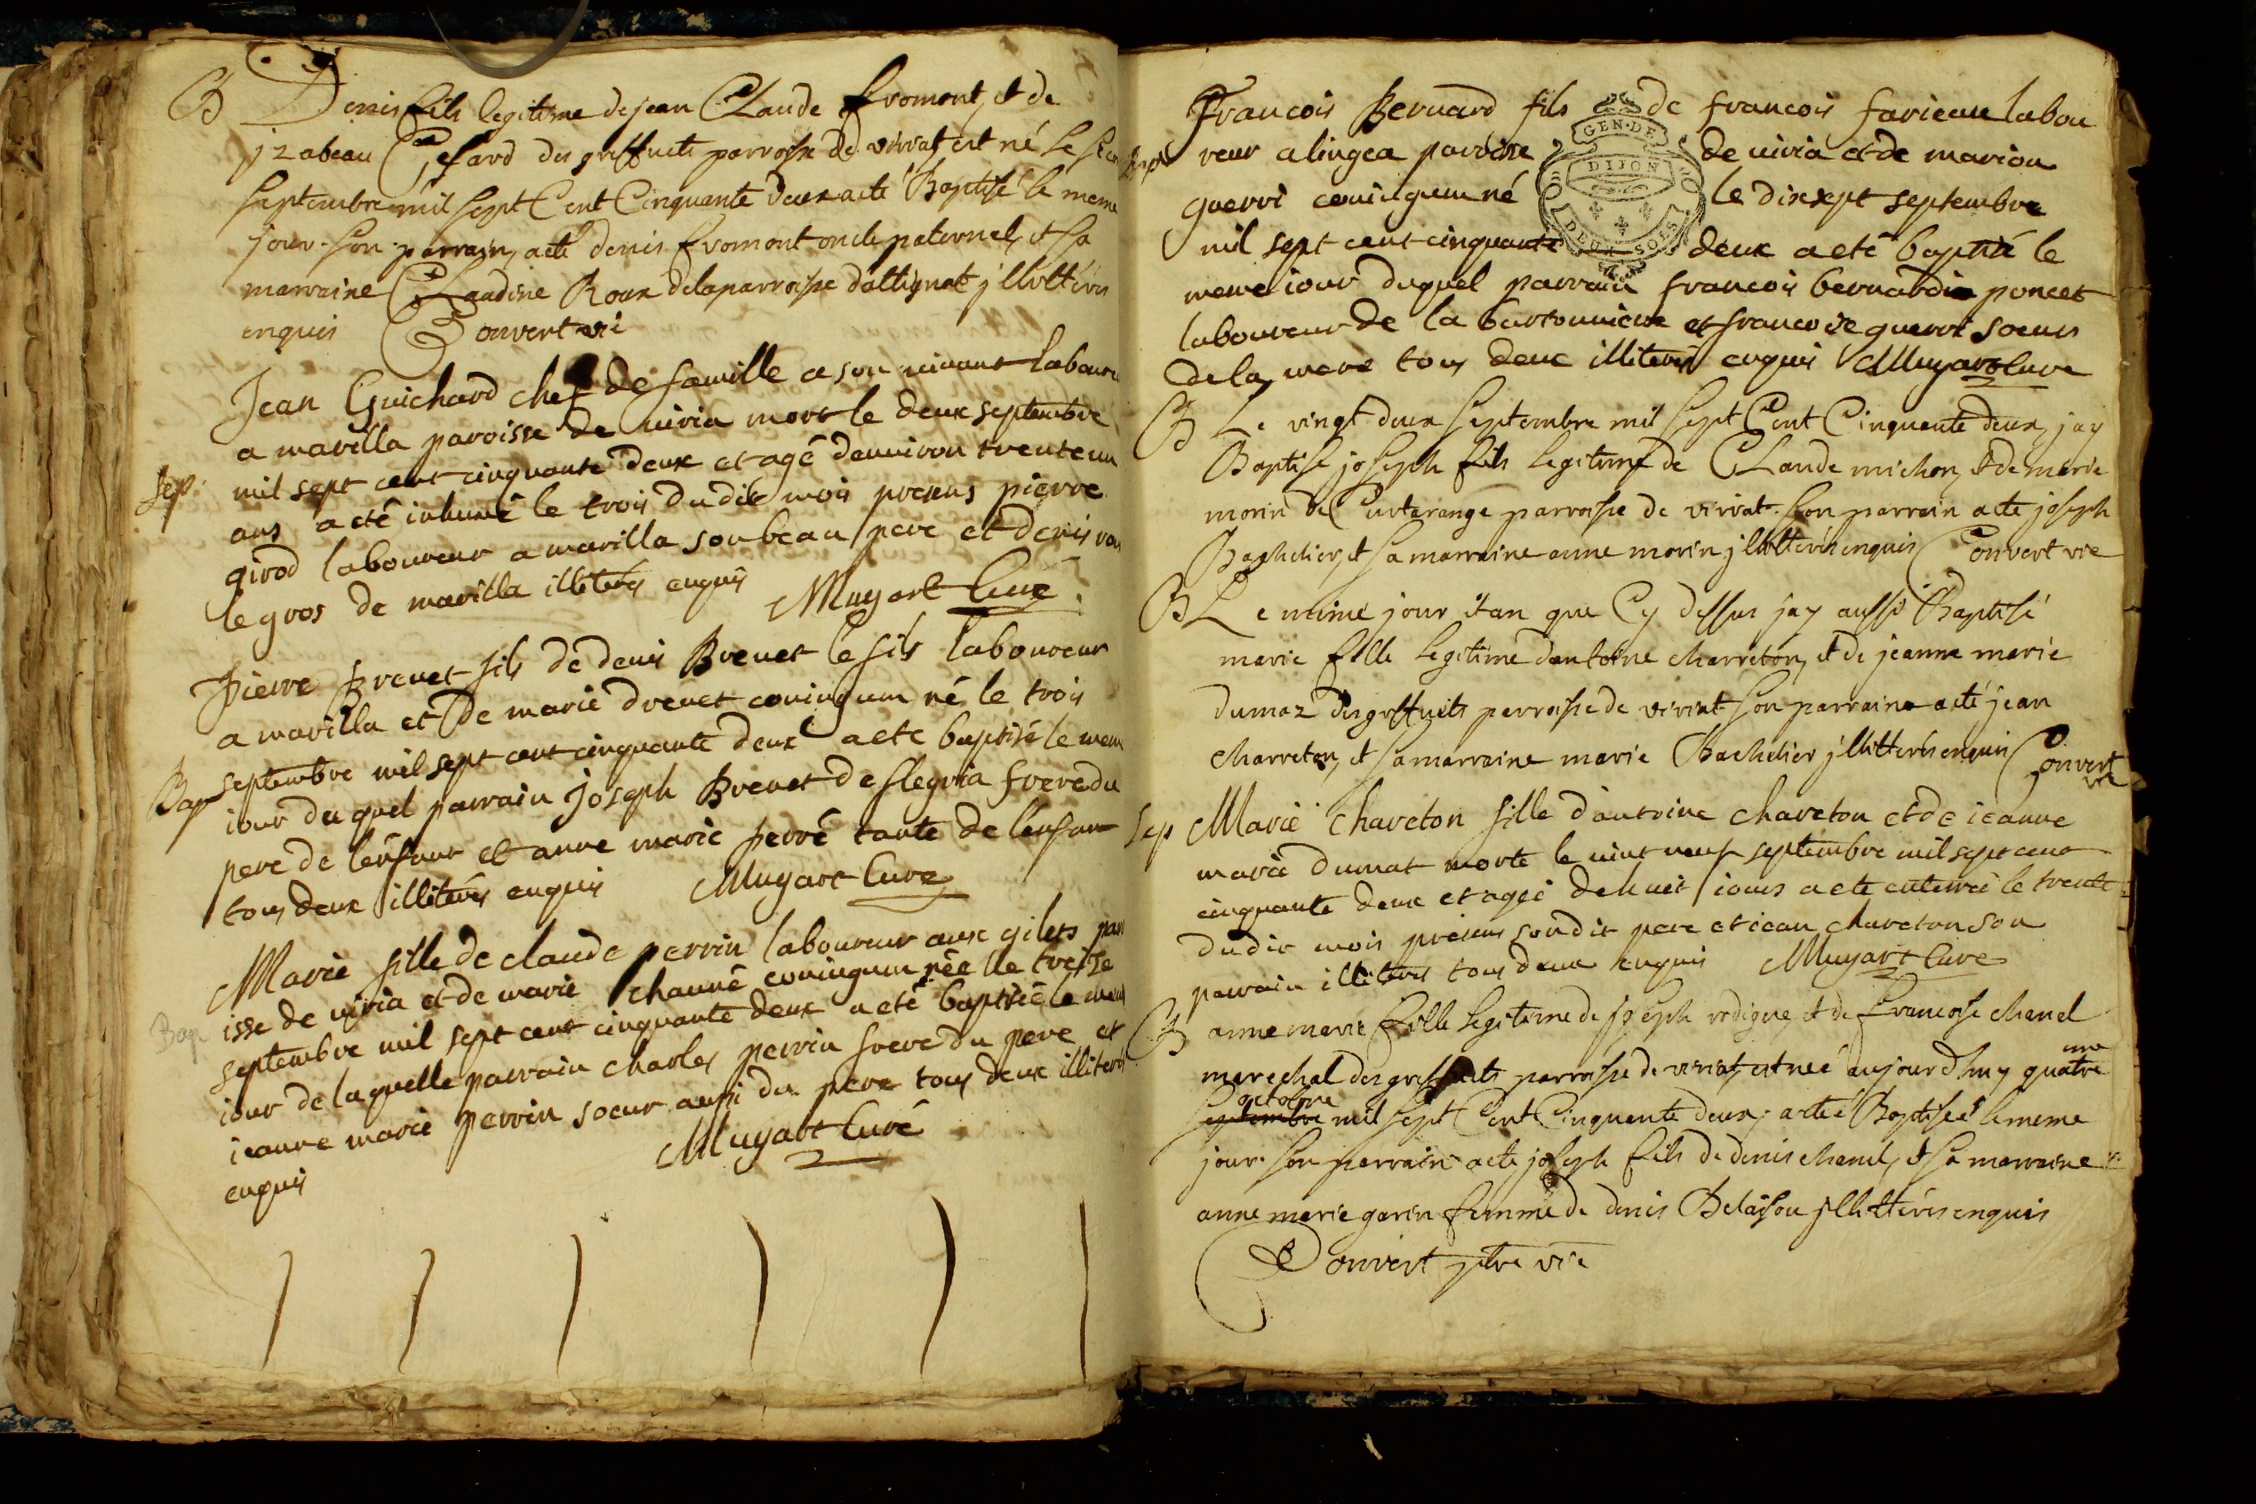 B Denis fils legitime de jean Claude fromont, et de
jzabeau Cesard des greffuets parroisse de viriat est né le
septembre mil sept Cent Cinquante deux a eté Baptisé le meme
jour. son parrain, a eté denis fromont oncle paternel, et sa
marraine Claudine Roux de la parroisse dattignat jllittérés
enquis Convert vic
Jean Guichard chef de famille a son vivant laboure
a marilla paroisse de uiria mort le deux septembre
Sep. mil sept cent cinquante deux et agé denuiron trente un
ans a eté inhumé le trois dudit mois presens pierre
girod laboureur a marilla son beau pere et denis
le gros de marilla illiterés enquis Muyart Curé
Pierre brevet fils de denis Brevet le fils laboureur
a marilla et de marie drevet coniugum né le trois
Bap septembre mil sept cent cinquante deux a eté baptisé le mem
iour du quel parrain joseph Brevet de flegria frere du
pere de lenfant et anne marie perré tante de lenfant
tous deux illiterés enquis Muyart Curé
Marie fille de claude perrin laboureur aux gilets par
isse de uiria et de marie channé coniugum née le treise
Bap septembre mil sept cent cinquante deux a eté baptisée le mem
iour de laquelle parrain charles perrin frere du pere et
ieanne marie perrin soeur aussi du pere tous deux illiterés
enquis Muyart Curé
Francois Bernard fils de francois farieau labou
Bap reur a lingea paroisse de uiria et de marion
guerri coniugum né le dixsept septembre
mil sept cent cinquante deux a eté baptisé le
meme iour duquel parrain francois bernardin poncet
laboureur de la bartonniere et francoise guerri soeur
de la mere tous deux illiterés enquis Muyart Cure
GEN. DE
DIJON
DEUX SOLS
B Le vingt deux septembre mil sept Cent Cinquante deux, jay
Baptisé joseph fils legitime de Claude michon, et de marie
morin de Curtarange parroisse de viriat. son parrain a eté joseph
Bachelier, et sa marraine anne morin jllittérés enquis Convert vic
B Le meme jour et an que Cy dessus jay aussi Baptisé
marie fille legitime d'antoine charreton, et de jeanne marie
dumaz des greffuets parroisse de viriat son parrain a eté jean
charreton, et sa marraine marie Bachelier jllittérés enquis Convert
vic
Sep Marie chareton fille d'antoine chareton et de ieanne
marie dumat morte le uint neuf septembre mil sept cent
cinquante deux et agée de huit iours a eté enterrée le trente
dudit mois presens son dit pere et iean chareton son
parrain illiterés tous deux enquis Muyart Cure
B anne marie fille legitime de joseph rodigue, et de francoise chanel
marechal des greffuets parroisse de viriat est née aujourdhuy quatre
octobre
septembre mil sept Cent Cinquante deux, a eté Baptisée le meme
jour. son parrain a eté joseph fils de denis chanel, et sa marraine
anne marie garin femme de denis Belaison jllittérés enquis
Convert ptre vic